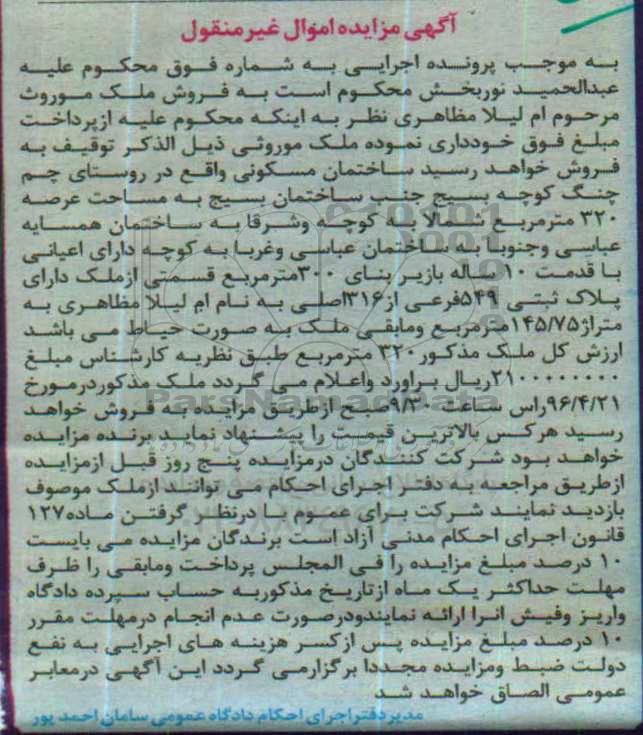 آگهی مزایده اموال غیر منقول
به موجب پرونده اجرایی به شماره فوق محکوم علیه
عبدالحمید نوربخش محکوم است به فروش ملک موروث
مرحوم ام لیلا مظاهری نظر به اینکه محکوم علیه ازپرداخت
مبلغ فوق خودداری نموده ملک موروثی ذیل الذکر توقیف به
فروش خواهد رسید ساختمان مسکونی واقع در روستای چم
چنگ کوچه بسیج جنب ساختمان بسیج به مساحت عرصه
۳۲۰ مترمربع شمالا به کوچه وشرقا به ساختمان همسایه
عباسی وجنوبا به ساختمان عباسی وغربا به کوچه دارای اعیانی
با قدمت ۱۰ساله بازیر بنای ۳۰۰مترمربع قسمتی ازملک دارای
پلاک ثبتی ۵۴۹فرعی از۳۱۶اصلی به نام ام لیلا مظاهری به
متراژ۱۴۵/۷۵مترمربع ومابقی ملک به صورت حیاط می باشد
ارزش کل ملک مذکور۳۲۰ مترمربع طبق نظریه کارشناس مبلغ
۲۱۰۰۰۰۰۰۰۰ریال براورد واعلام می گردد ملک مذکوردرمورخ
۹۶/۴/۲۱راس ساعت ۹/۳۰صبح ازطریق مزایده به فروش خواهد
رسید هرکس بالاترین قیمت را پیشنهاد نماید برنده مزایده
خواهد بود شرکت کنندگان درمزایده پنج روز قبل ازمزایده
ازطریق مراجعه به دفتر اجرای احکام می توانند ازملک موصوف
بازدید نمایند شرکت برای عموم با درنظر گرفتن ماده۱۲۷
قانون اجرای احکام مدنی آزاد است برندگان مزایده می بایست
۱۰ درصد مبلغ مزایده را فی المجلس پرداخت ومابقی را ظرف
مهلت حداکثر یک ماه ازتاریخ مذکوربه حساب سپرده دادگاه
واریز وفیش انرا ارائه نمایندودرصورت عدم انجام درمهلت مقرر
۱۰ درصد مبلغ مزایده پس ازکسر هزینه های اجرایی به نفع
دولت ضبط ومزایده مجددا برگزارمی گردد این آگهی درمعابر
عمومی الصاق خواهد شد
مدیردفتراجرای احکام دادگاه عمومی سامان احمد پور
ParsNamadData